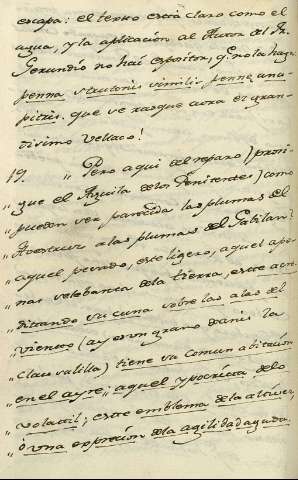 escapa: el texto està claro como el
agua, y la aplicacion al Autor del Fr.
Gerundio no hai expositor, q.e no la haga
penna strutionis similis pennæ
pitris. que se rasque aora el gran-
disimo vellaco!
19. " Pero aqui del reparo (prosi-
" gue el Aguila de los Penitentes) como
" pueden ser parecida las plumas del
" Avestruz a las plumas del Gabilan?
" aquel pesado, este ligero, aquel ape-
" nas se lebanta de la tierra, este acre-
" ditando su cuna sobre las alas del
" viento (ay es un grano de anis la
" clausulilla) tiene su comun abitacion
" en el ayre; aquel ypocrita de lo
" volatil; este emblema de la
" ò una expresion de la agilidad aguda.